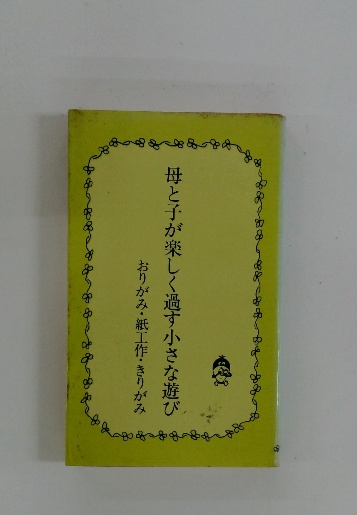 母と子が楽しく過す小さな遊び
おりがみ・紙工作・きりがみ